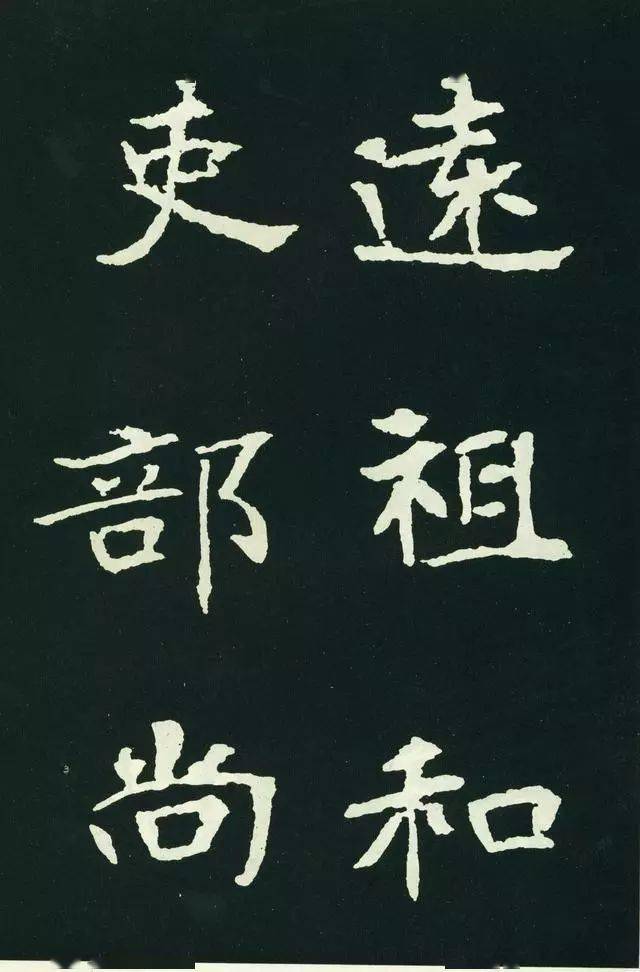 遠祖和
吏部尚